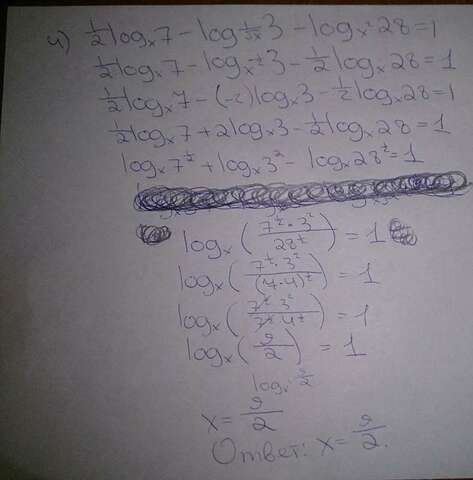 4) ½logₓ7 - log_{1/√x}3 - log_{x²}28 = 1
½logₓ7 - log_{x^{-½}}3 - ½logₓ28 = 1
½logₓ7 - (-2)logₓ3 - ½logₓ28 = 1
½logₓ7 + 2logₓ3 - ½logₓ28 = 1
logₓ7^{½} + logₓ3² - logₓ28^{½} = 1
logₓ(7^{½}·3²/28^{½}) = 1
logₓ(7^{½}·3²/(7·4)^{½}) = 1
logₓ(7^{½}·3²/7^{½}·4^{½}) = 1
logₓ(9/2) = 1
x = 9/2
Ответ: x = 9/2.